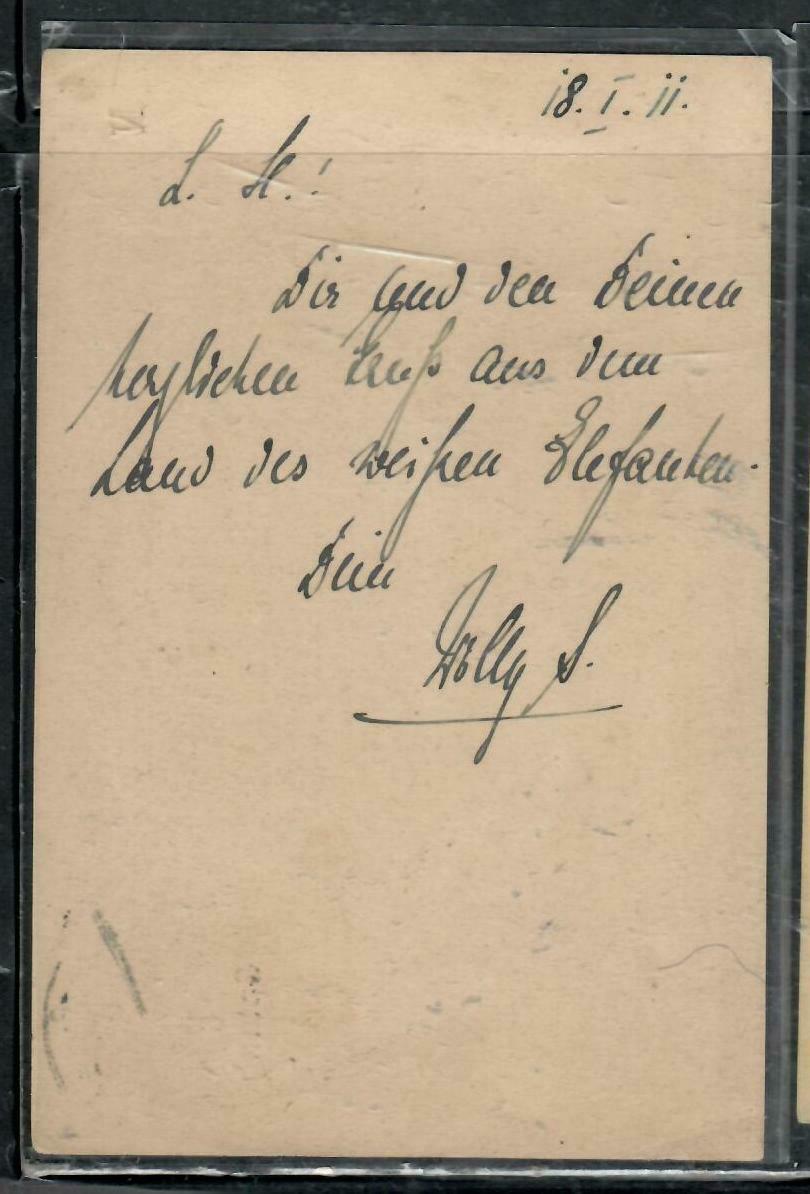 18. I. 11.
L. H.!
Dir und den Deinen
herzlichen Gruß aus dem
Land des weißen Elefanten.
Dein
Willy S.